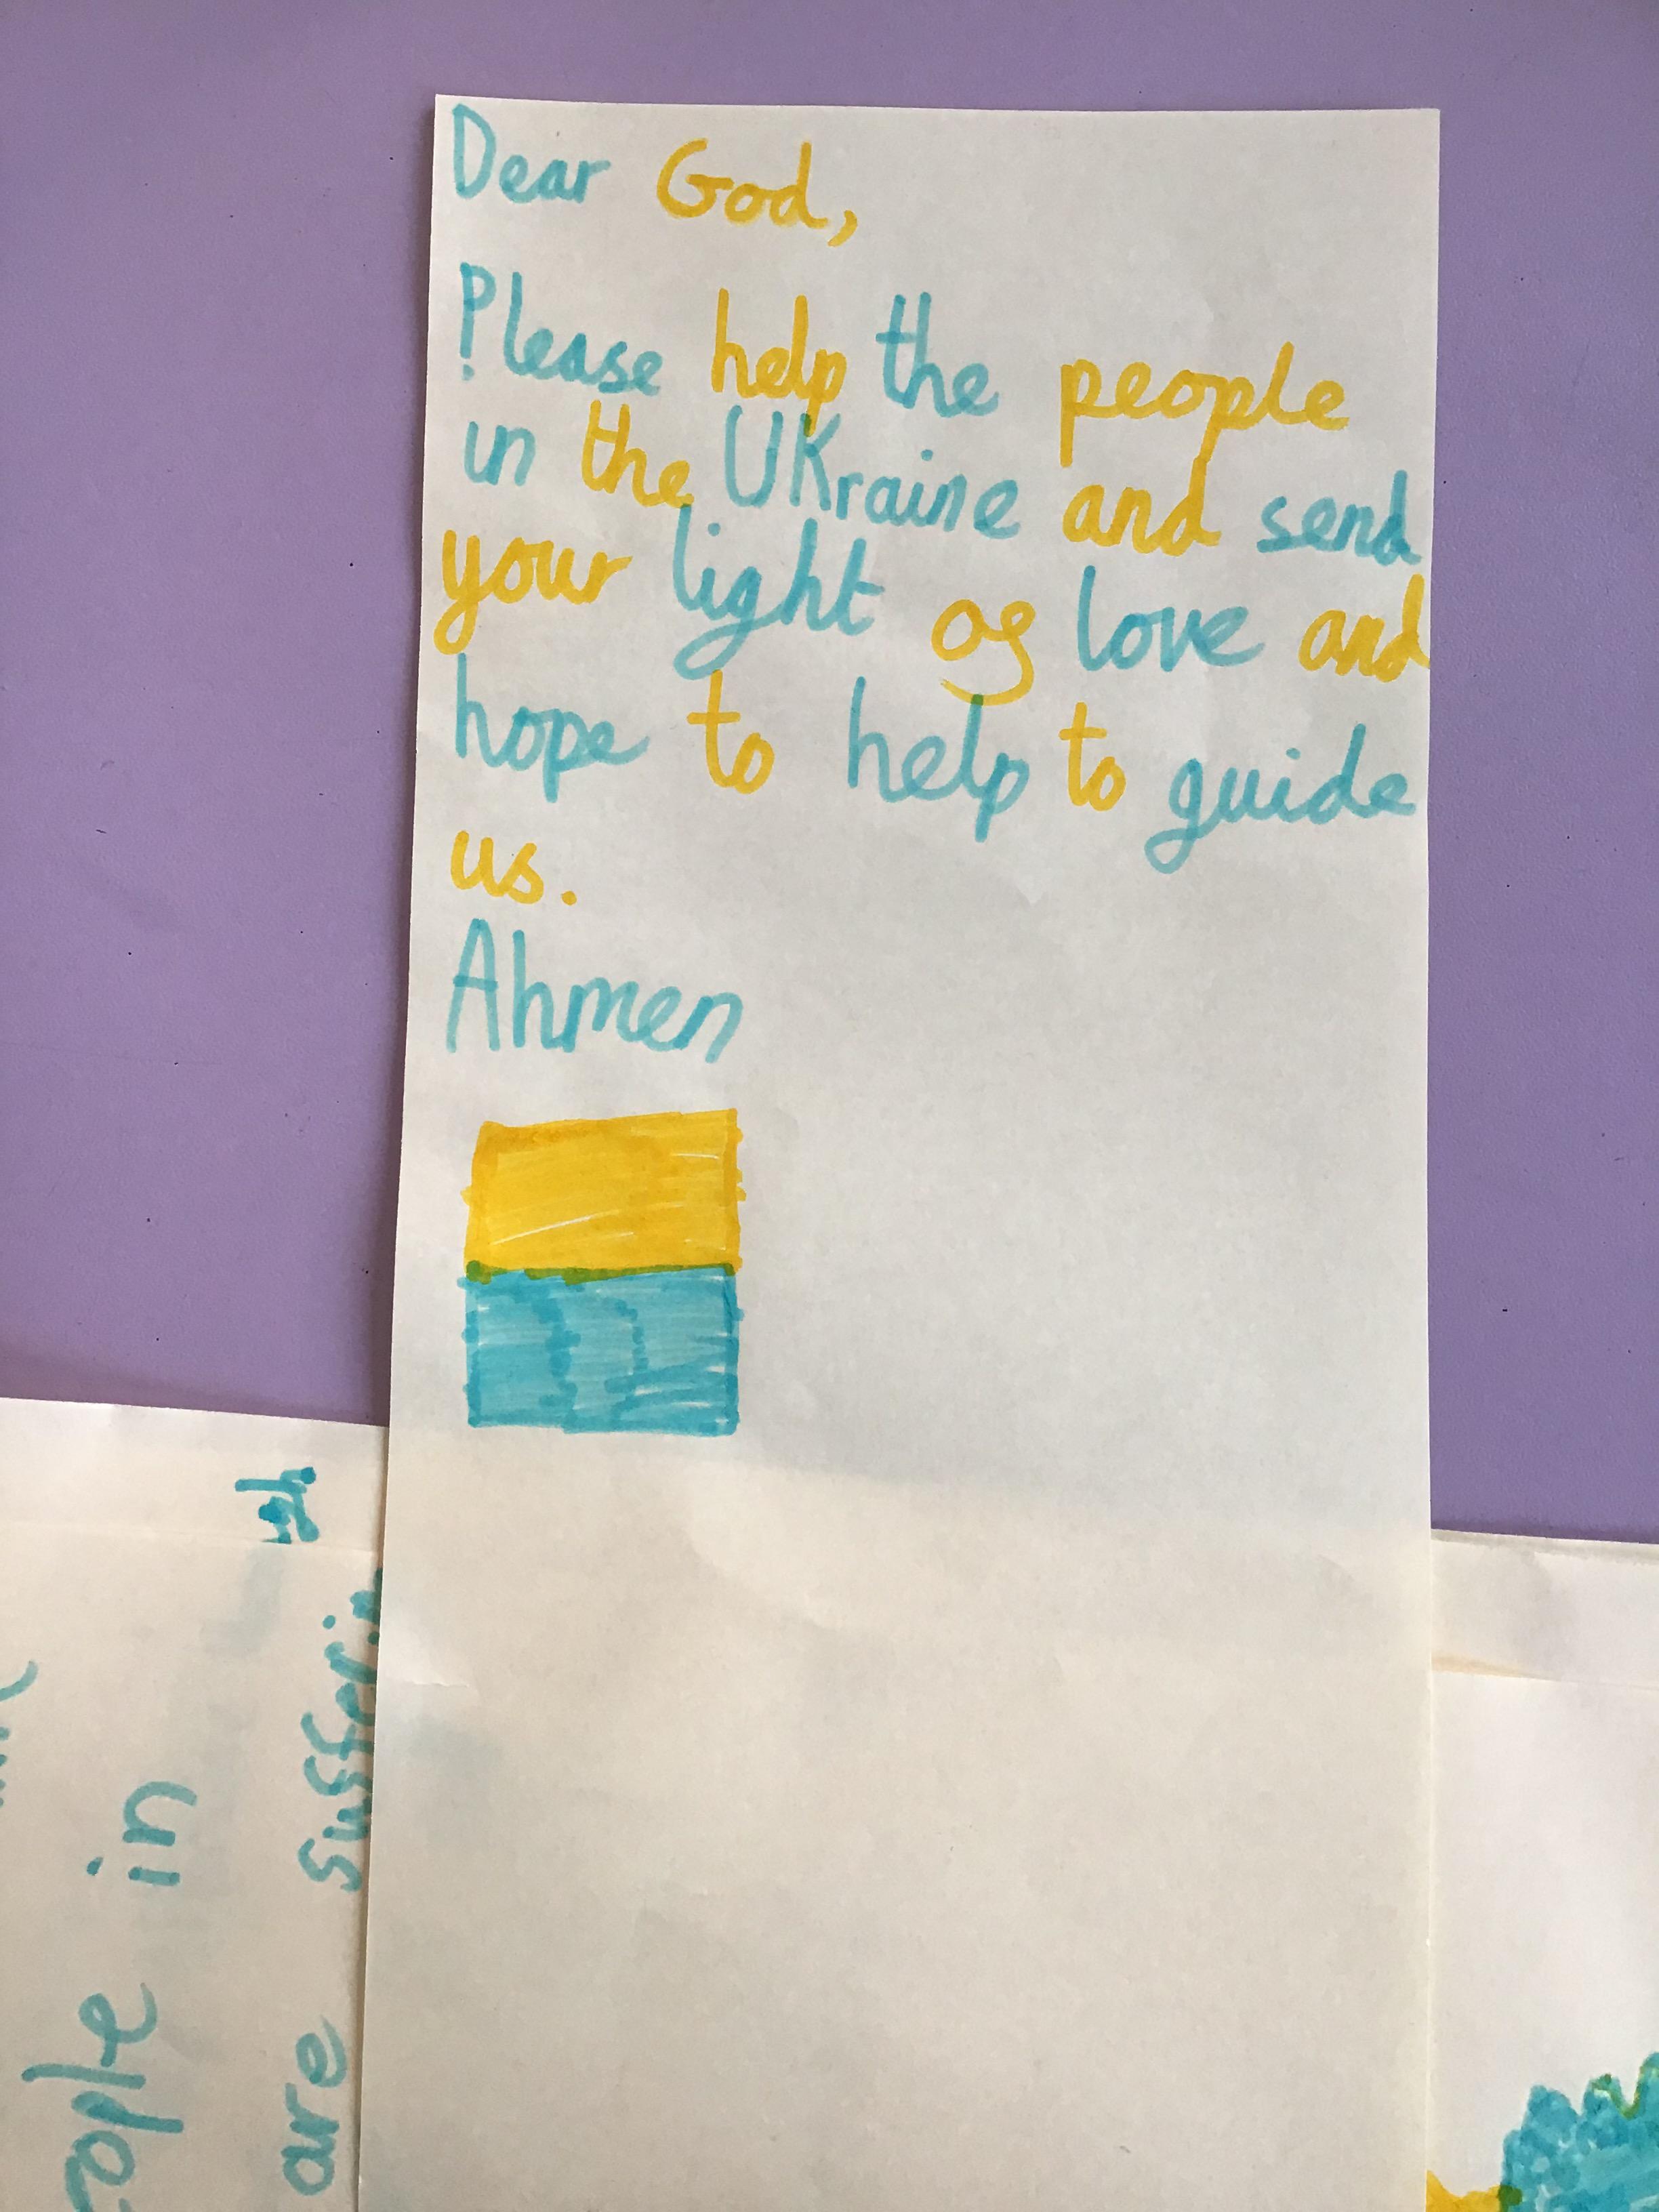 Dear God,
Please help the people
in the UKraine and send
your light of love and
hope to help to guide
us.
Ahmen
in
are